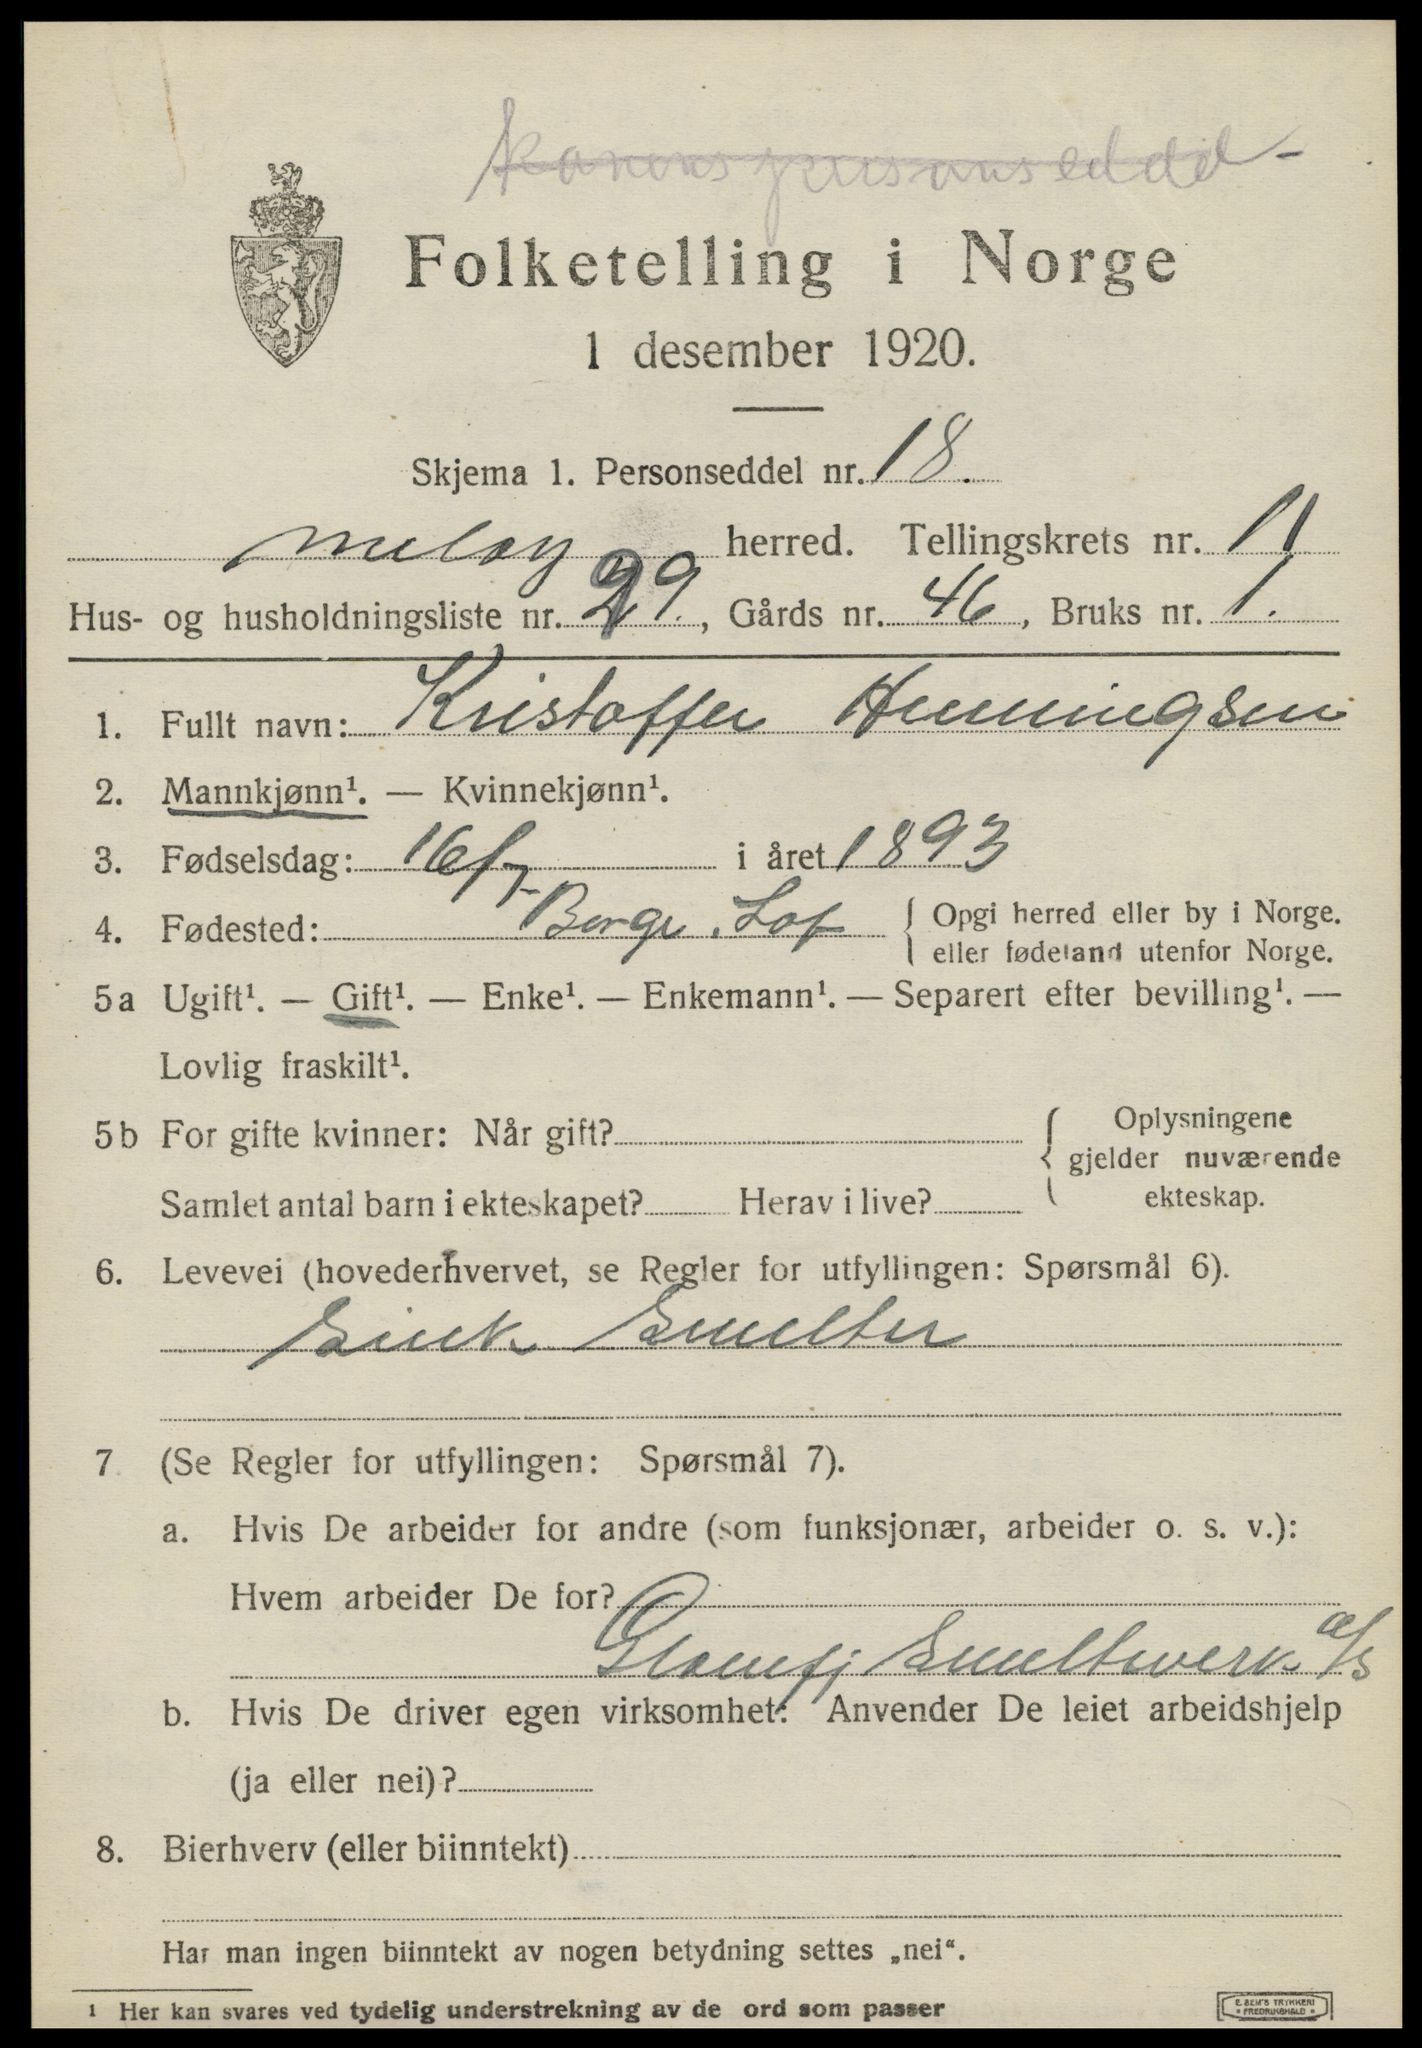 Folketelling i Norge
1 desember 1920.
Skjema 1. Personseddel nr. 18.
Meløy herred. Tellingskrets nr. 11
Hus- og husholdningsliste nr. 29., Gårds nr. 46, Bruks nr. 1.
1. Fullt navn: Kristoffer Henningsen
2. Mannkjønn¹. — Kvinnekjønn¹.
3. Fødselsdag: 16/7- i året 1893
4. Fødested: Borge. Lof { Opgi herred eller by i Norge.
eller fødeland utenfor Norge.
5a Ugift¹. — Gift¹. — Enke¹. — Enkemann¹. — Separert efter bevilling¹. —
Lovlig fraskilt¹.
5b For gifte kvinner: Når gift? { Oplysningene
gjelder nuværende
Samlet antal barn i ekteskapet? Herav i live? ekteskap.
6. Levevei (hovederhvervet, se Regler for utfyllingen: Spørsmål 6).
Sink Smelter
7 (Se Regler for utfyllingen: Spørsmål 7).
a. Hvis De arbeider for andre (som funksjonær, arbeider o. s. v.):
Hvem arbeider De for?
Glomfj Smeltverk a/s
b. Hvis De driver egen virksomhet: Anvender De leiet arbeidshjelp
(ja eller nei)?
8. Bierhverv (eller biinntekt)
Har man ingen biinntekt av nogen betydning settes „nei“.
¹ Her kan svares ved tydelig understrekning av de ord som passer
E. SEM'S TRYKKERI
FREDRIKSHALD